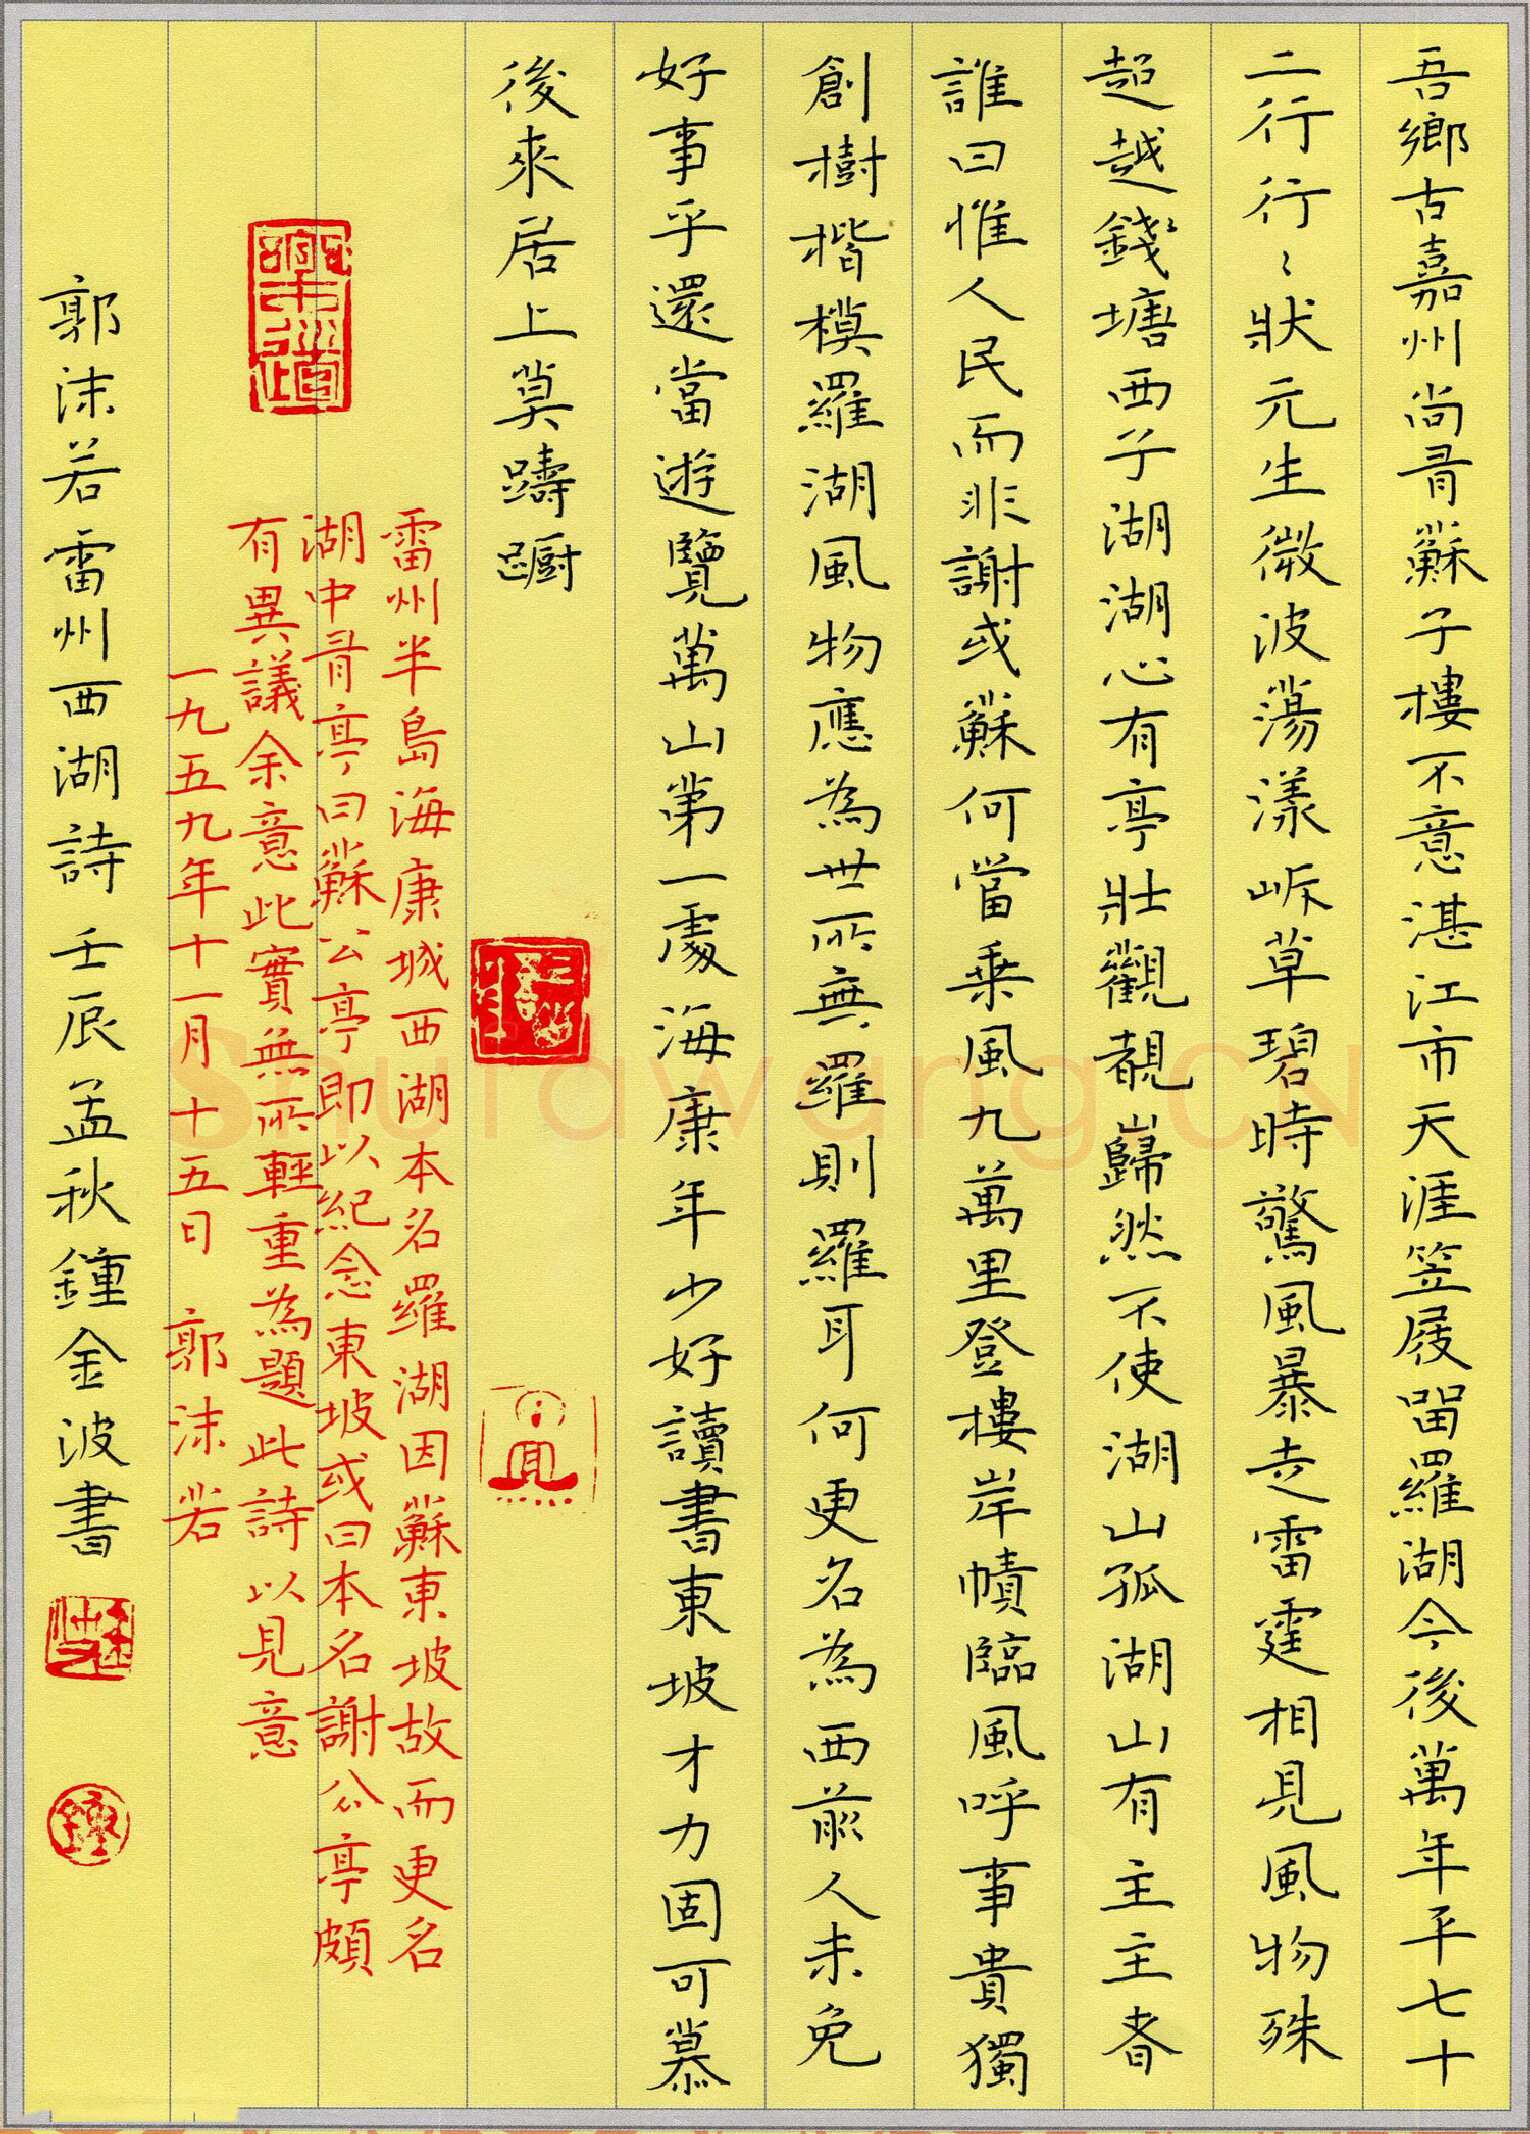 吾鄉古嘉州尚有蘇子樓不意湛江市天涯笠屐留羅湖今後萬年平七十
二行行〻狀元生微波蕩漾岍草碧時驚風暴走雷霆相見風物殊
超越錢塘西子湖湖心有亭壯觀覩巋然不使湖山孤湖山有主主者
誰曰惟人民而非謝或蘇何當乘風九萬里登樓岸幘臨風呼事貴獨
創樹楷模羅湖風物應為世所無羅則羅耳何更名為西前人未免
好事乎還當遊覽萬山第一處海康年少好讀書東坡才力固可慕
後來居上莫躊躕
雷州半島海康城西湖本名羅湖因蘇東坡故而更名
湖中有亭曰蘇公亭即以紀念東坡或曰本名謝公亭頗
有異議余意此實無所輕重為題此詩以見意
一九五九年十一月十五日 郭沫若
郭沫若雷州西湖詩 壬辰孟秋鍾金波書
Shufawang.CN